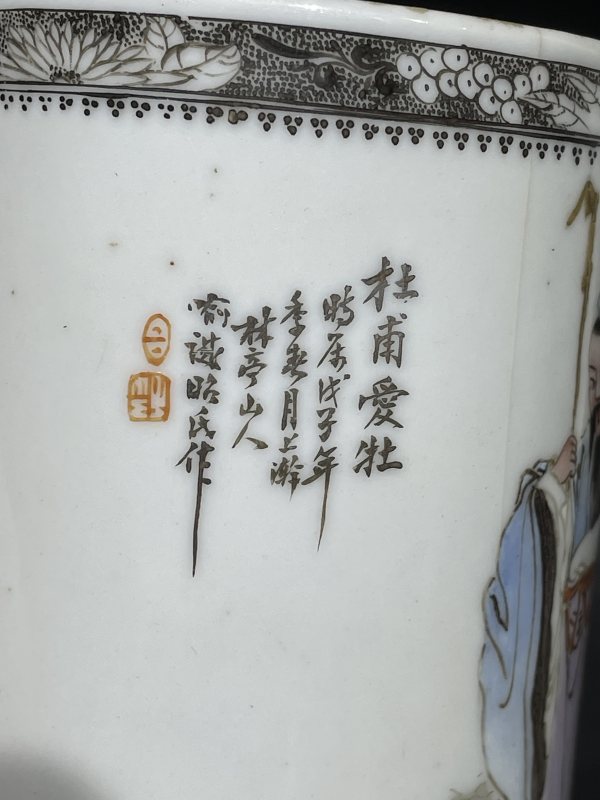 杜甫愛牡
時属戊子年
季春月上澣
林亭山人
喻昭氏作